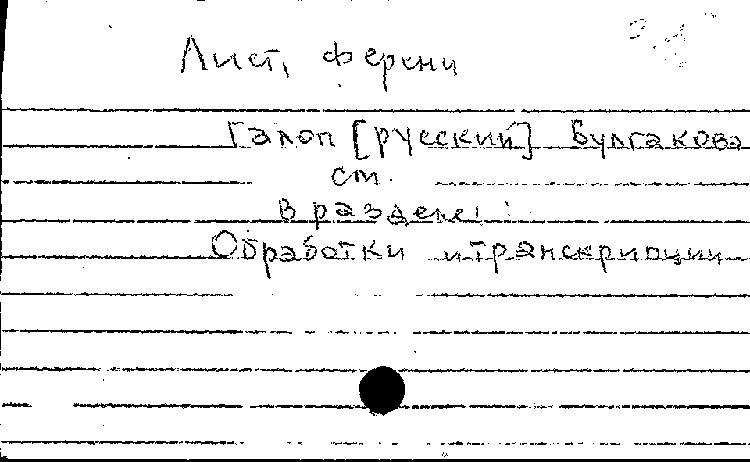 Лист, Ференц
Галоп [русский] Булгакова
см.
в разделе:
Обработки и транскрипции